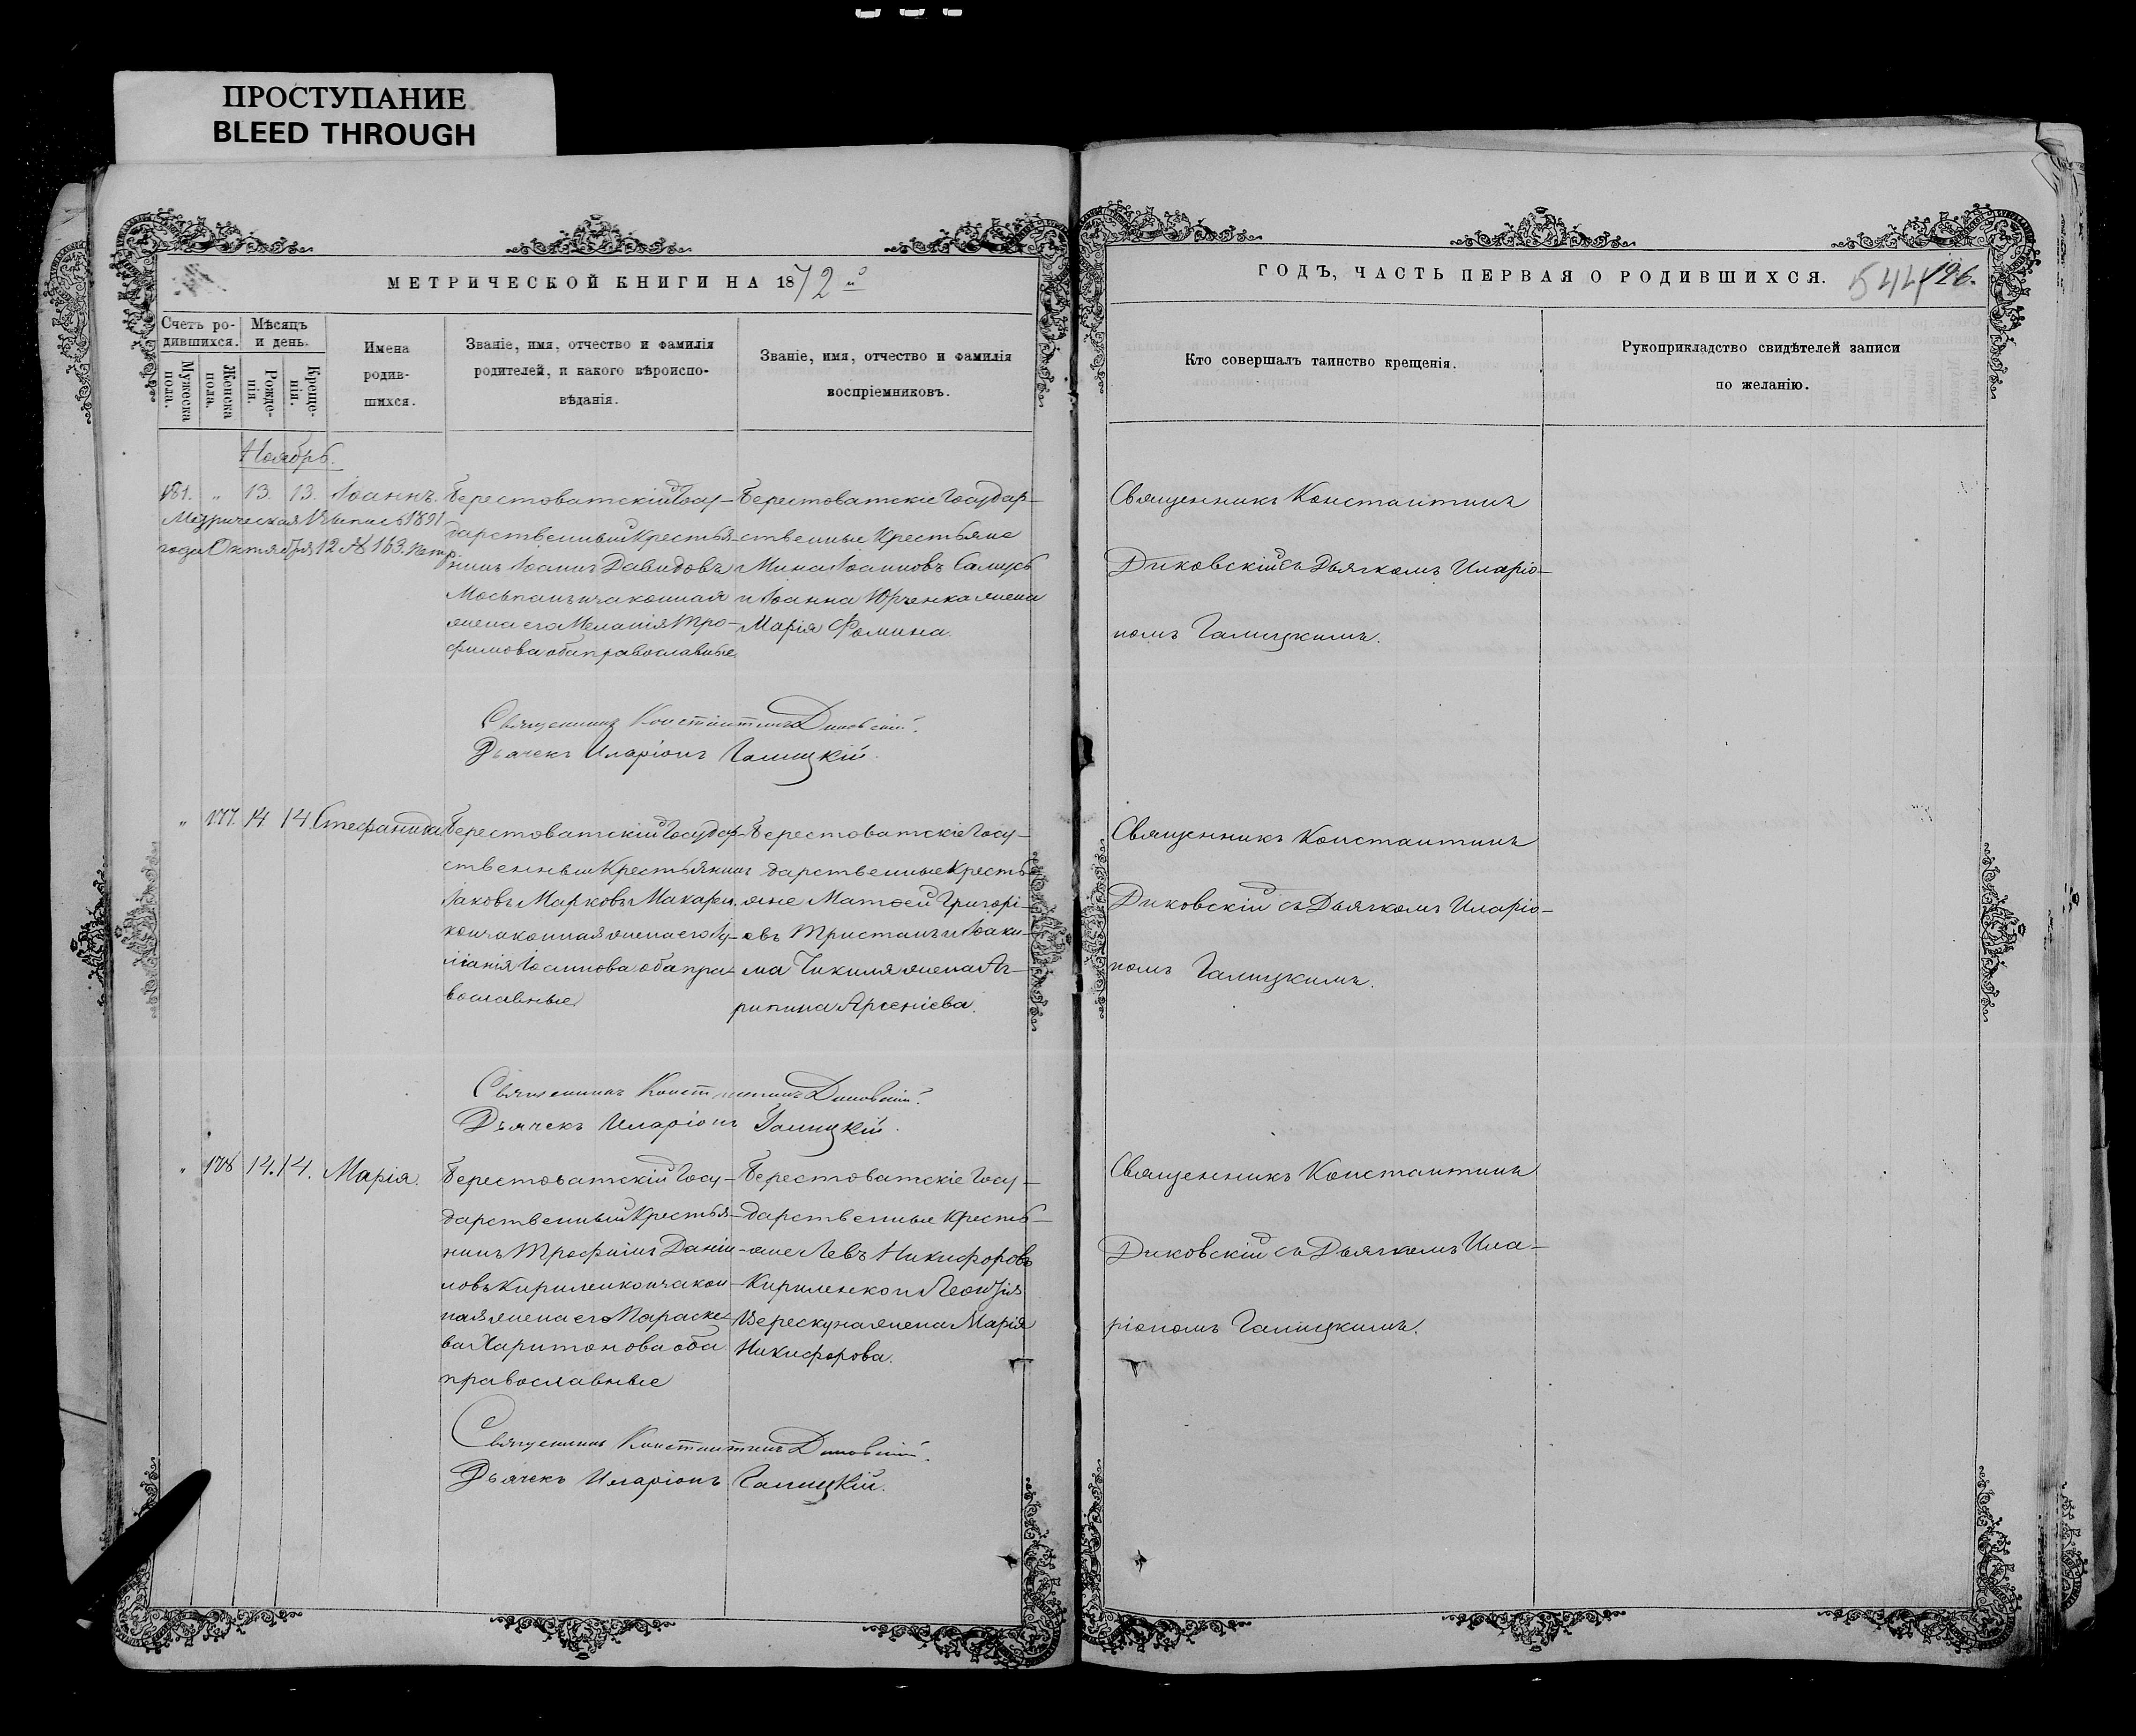 ПРОСТУПАНИЕ
BLEED THROUGH
МЕТРИЧЕСКОЙ КНИГИ НА 1872й
ГОДЪ, ЧАСТЬ ПЕРВАЯ О РОДИВШИХСЯ.
544
126.
Счетъ ро-
дившихся.
Мѣсяцъ
и день.
Мужеска
пола.
Женска
пола.
Рожде-
нія.
Креще-
нія.
Имена
родив-
шихся.
Званіе, имя, отчество и фамилія
родителей, и какого вѣроиспо-
вѣданія.
Званіе, имя, отчество и фамилія
воспріемниковъ.
Кто совершалъ таинство крещенія.
Рукоприкладство свидѣтелей записи
по желанію.
Ноябрь.
181. „ 13. 13. Іоаннъ.
Метрическая выпись 1891
года Октября 12 № 163.
Берестоватскій Госу-
дарственный Крестья-
нинъ Іоаннъ Давидовъ
законная
жена его Меланія Тро-
фимова оба православные
Берестоватскіе Государ-
ственные Крестьяне
Мина Іоанновъ Салусь
и Іоанна Юрченка жена
Марія Фомина.
Священникъ Константинъ
Диковскій съ Дьячкомъ Иларіо-
номъ Галицкимъ.
Священникъ Константинъ Диковскій.
Дьячекъ Иларіонъ Галицкій.
„ 177. 14 14. Стефанида
Берестоватскій Государ-
ственный Крестьянинъ
Іаковъ Марковъ Макарен-
ко и законная жена его Іу-
ліанія Іоаннова оба пра-
вославные
Берестоватскіе Госу-
дарственные Кресть-
яне Матѳей Григорі-
евъ Тристанъ и Іоаки-
ма Чикиля жена Аг-
рипина Арсеніева.
Священникъ Константинъ
Диковскій съ Дьячкомъ Иларіо-
номъ Галицкимъ.
Священникъ Константинъ Диковскій.
Дьячекъ Иларіонъ Галицкій.
„ 178 14. 14. Марія.
Берестоватскій Госу-
дарственный Крестья-
нинъ Трофимъ Даніи-
ловъ Кириленко и закон-
ная жена его Параске-
ва Харитонова оба
православные
Берестоватскіе Госу-
дарственные Кресть-
яне Левъ Никифоровъ
Кириленко и Леонтія
Верескуна жена Марія
Никифорова.
Священникъ Константинъ
Диковскій съ Дьячкомъ Ила-
ріономъ Галицкимъ.
Священникъ Константинъ Диковскій.
Дьячекъ Иларіонъ Галицкій.